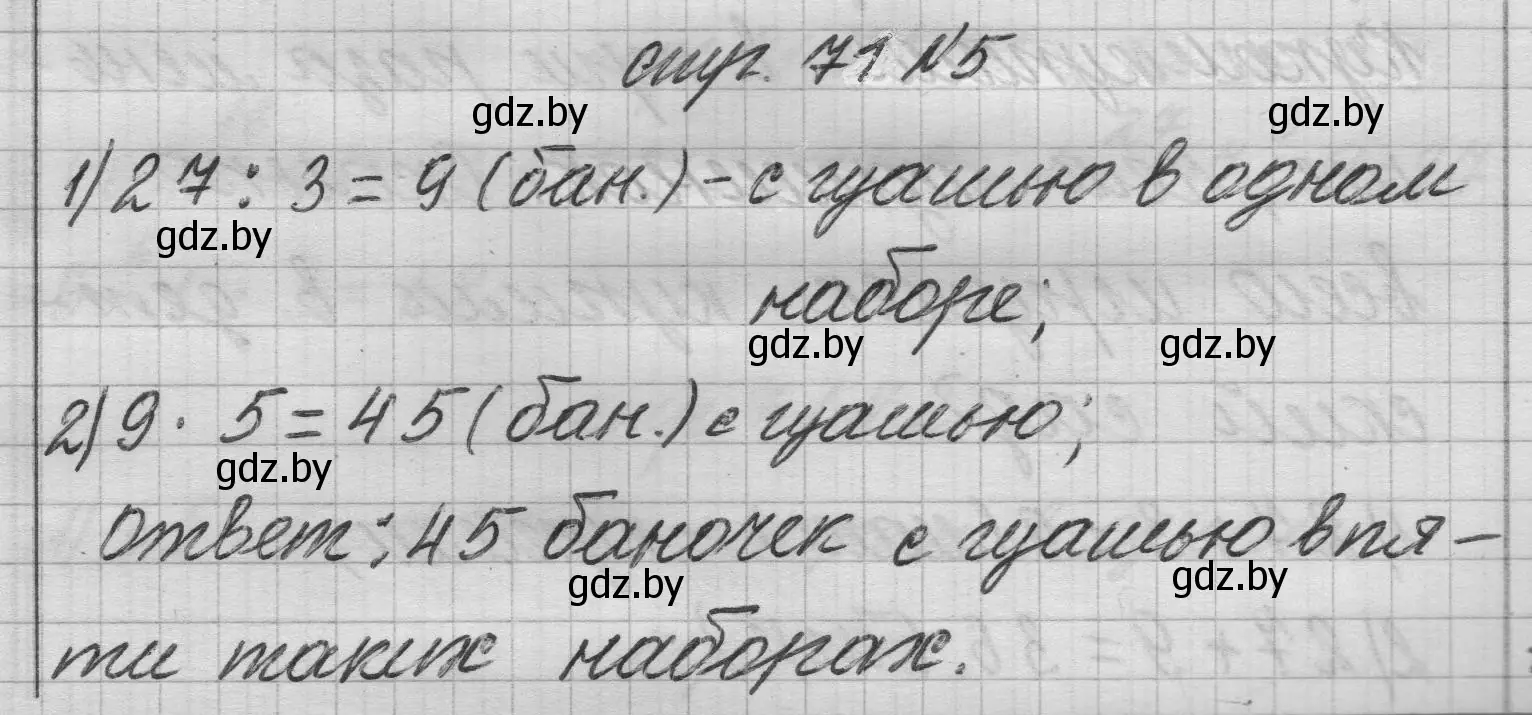 стр. 71 №5
gdz.by gdz.by
1) 27 : 3 = 9 (бан.) – с гуашью в одном
gdz.by
наборе;
gdz.by gdz.by
2) 9 · 5 = 45 (бан.) с гуашью;
gdz.by
Ответ: 45 баночек с гуашью в пя–
gdz.by gdz.by
ти таких наборах.